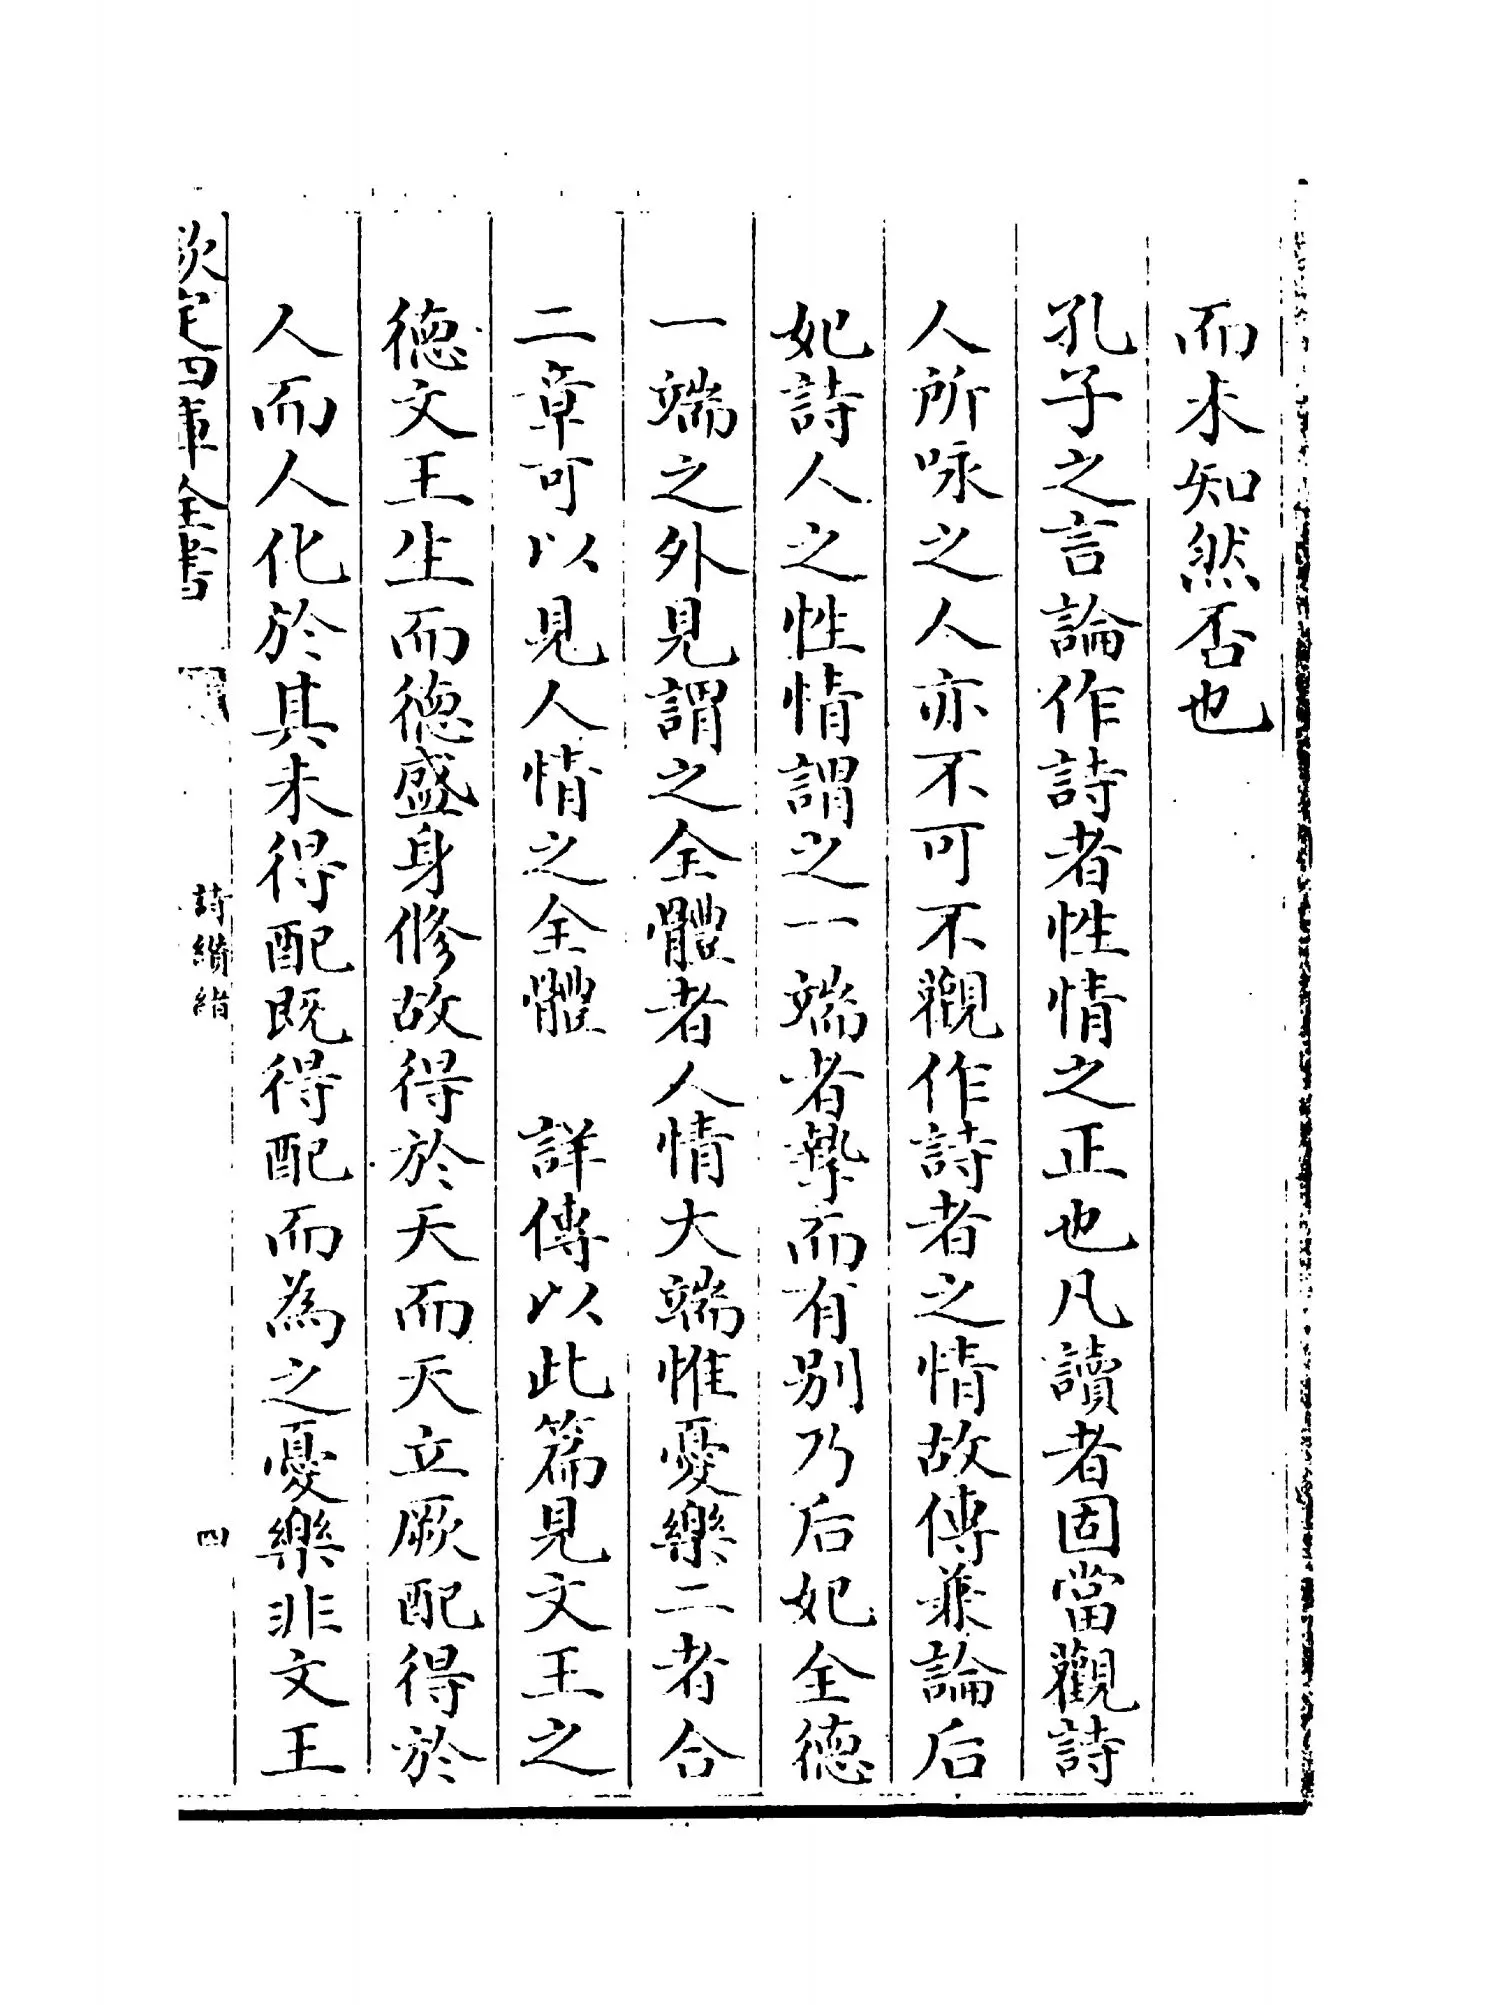 而未知然否也
孔子之言論作詩者性情之正也凡讀者固當觀詩
人所咏之人亦不可不觀作詩者之情故傳兼論后
妃詩人之性情謂之一端者摯而有别乃后妃全德
一端之外見謂之全體者人情大端惟憂樂二者合
二章可以見人情之全體　詳傳以此篇見文王之
德文王生而德盛身修故得於天而天立厥配得於
人而人化於其未得配既得配而為之憂樂非文王
欽定四庫全書
詩纘緒
四